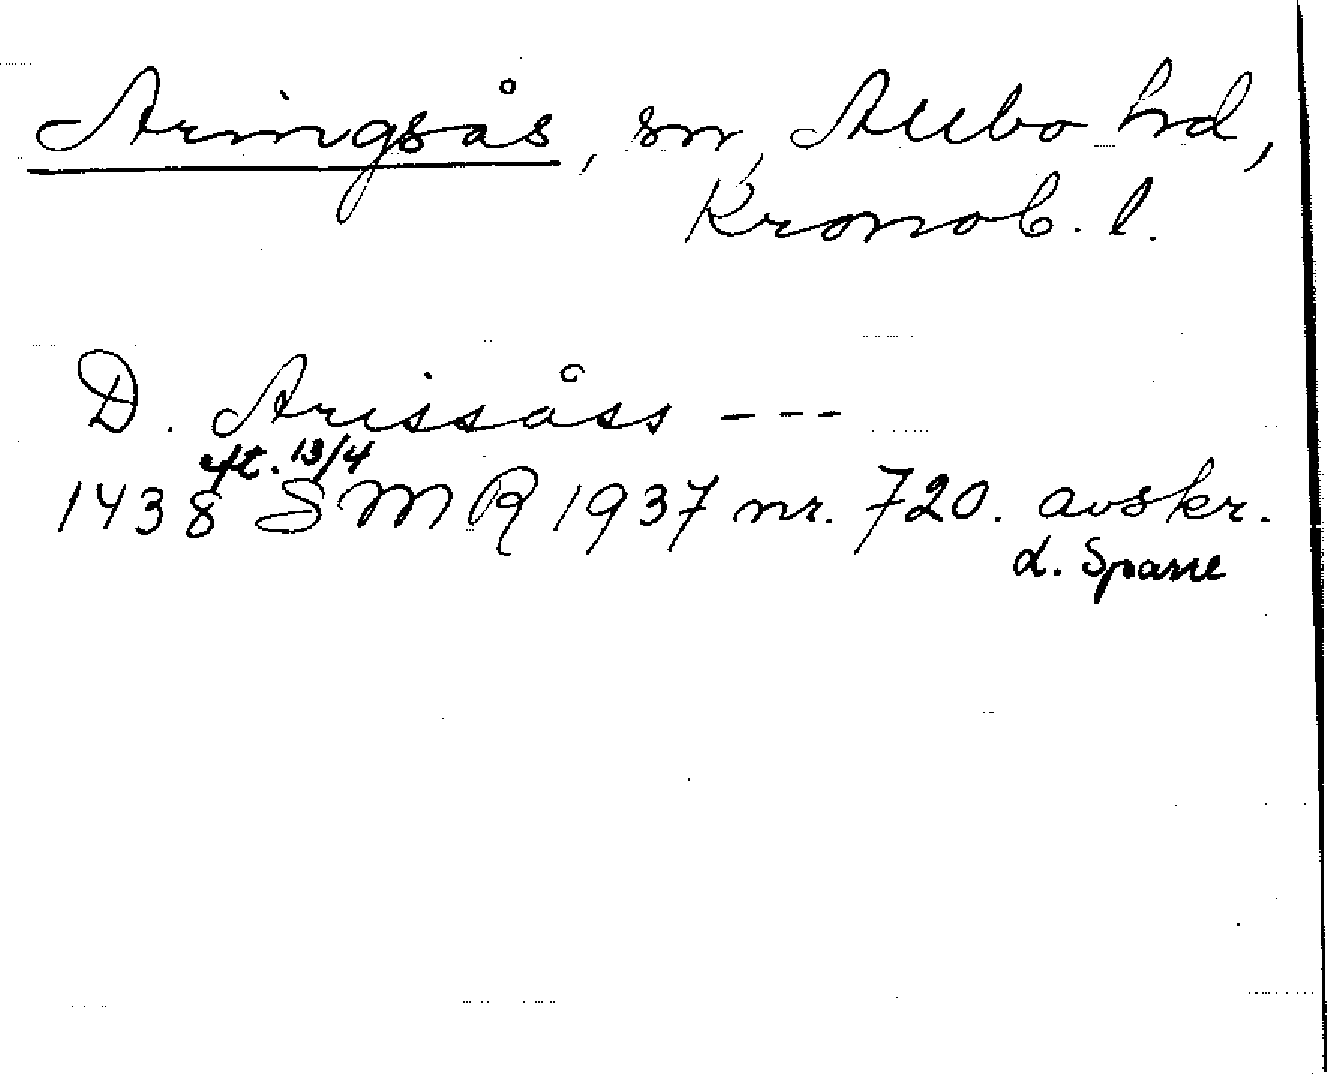 Aringsås, sn, Allbo hd,
Kronob. l.
D. Arissåss ---
eft. 13/4
1438 SMR 1937 nr. 720. avskr.
L. Sparre